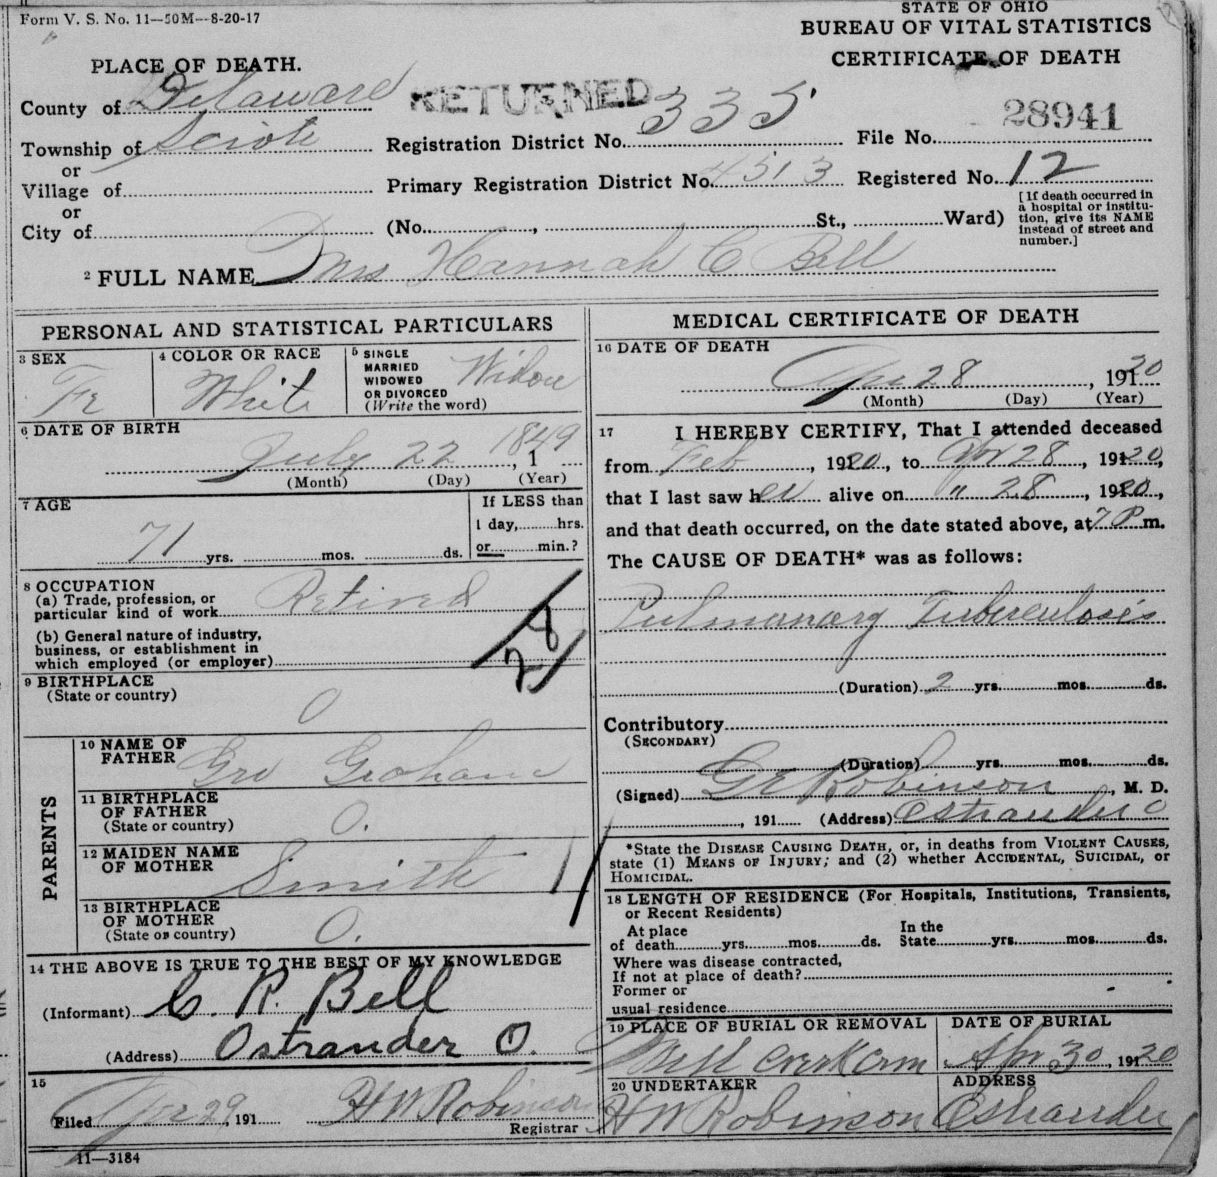 Form V. S. No. 11—50M—8-20-17
STATE OF OHIO
BUREAU OF VITAL STATISTICS
CERTIFICATE OF DEATH
PLACE OF DEATH.
County of Delaware
RETURNED
Township of Scioto
Registration District No. 335
File No. 28941
or
Village of
Primary Registration District No. 4513
Registered No. 12
or
City of
(No. , St., Ward)
[If death occurred in
a hospital or institu-
tion, give its NAME
instead of street and
number.]
2 FULL NAME Mrs Hannah C Bell
PERSONAL AND STATISTICAL PARTICULARS
3 SEX
Fe
4 COLOR OR RACE
White
5 SINGLE
MARRIED
WIDOWED
OR DIVORCED
(Write the word)
Widow
6 DATE OF BIRTH
July 22 , 1 1849
(Month) (Day) (Year)
7 AGE
71 yrs. mos. ds.
If LESS than
1 day, hrs.
or min.?
8 OCCUPATION
(a) Trade, profession, or
particular kind of work Retired
(b) General nature of industry,
business, or establishment in
which employed (or employer)
28
9 BIRTHPLACE
(State or country)
O
PARENTS
10 NAME OF
FATHER Geo Graham
11 BIRTHPLACE
OF FATHER
(State or country) O.
12 MAIDEN NAME
OF MOTHER
Smith
13 BIRTHPLACE
OF MOTHER
(State or country) O.
14 THE ABOVE IS TRUE TO THE BEST OF MY KNOWLEDGE
(Informant) C. R. Bell
(Address) Ostrander O.
15
Filed Apr 29, 191 H W Robinson
Registrar
11—3184
MEDICAL CERTIFICATE OF DEATH
16 DATE OF DEATH
Apr 28 , 191 20
(Month) (Day) (Year)
17 I HEREBY CERTIFY, That I attended deceased
from Feb , 1920, to Apr 28, 1920,
that I last saw her alive on " 28, 1920,
and that death occurred, on the date stated above, at 7 P m.
The CAUSE OF DEATH* was as follows:
Pulmonary Tuberculosis
(Duration) 2 yrs. mos. ds.
Contributory
(SECONDARY)
(Duration) yrs. mos. ds.
(Signed) Robinson, M. D.
, 191 (Address) Ostrander O
*State the DISEASE CAUSING DEATH, or, in deaths from VIOLENT CAUSES,
state (1) MEANS OF INJURY; and (2) whether ACCIDENTAL, SUICIDAL, or
HOMICIDAL.
18 LENGTH OF RESIDENCE (For Hospitals, Institutions, Transients,
or Recent Residents)
At place
of death yrs. mos. ds.
In the
State yrs. mos. ds.
Where was disease contracted,
If not at place of death?
Former or
usual residence
19 PLACE OF BURIAL OR REMOVAL
Mill Creek Cem
DATE OF BURIAL
Apr 30, 191 20
20 UNDERTAKER
H W Robinson
ADDRESS
Ostrander